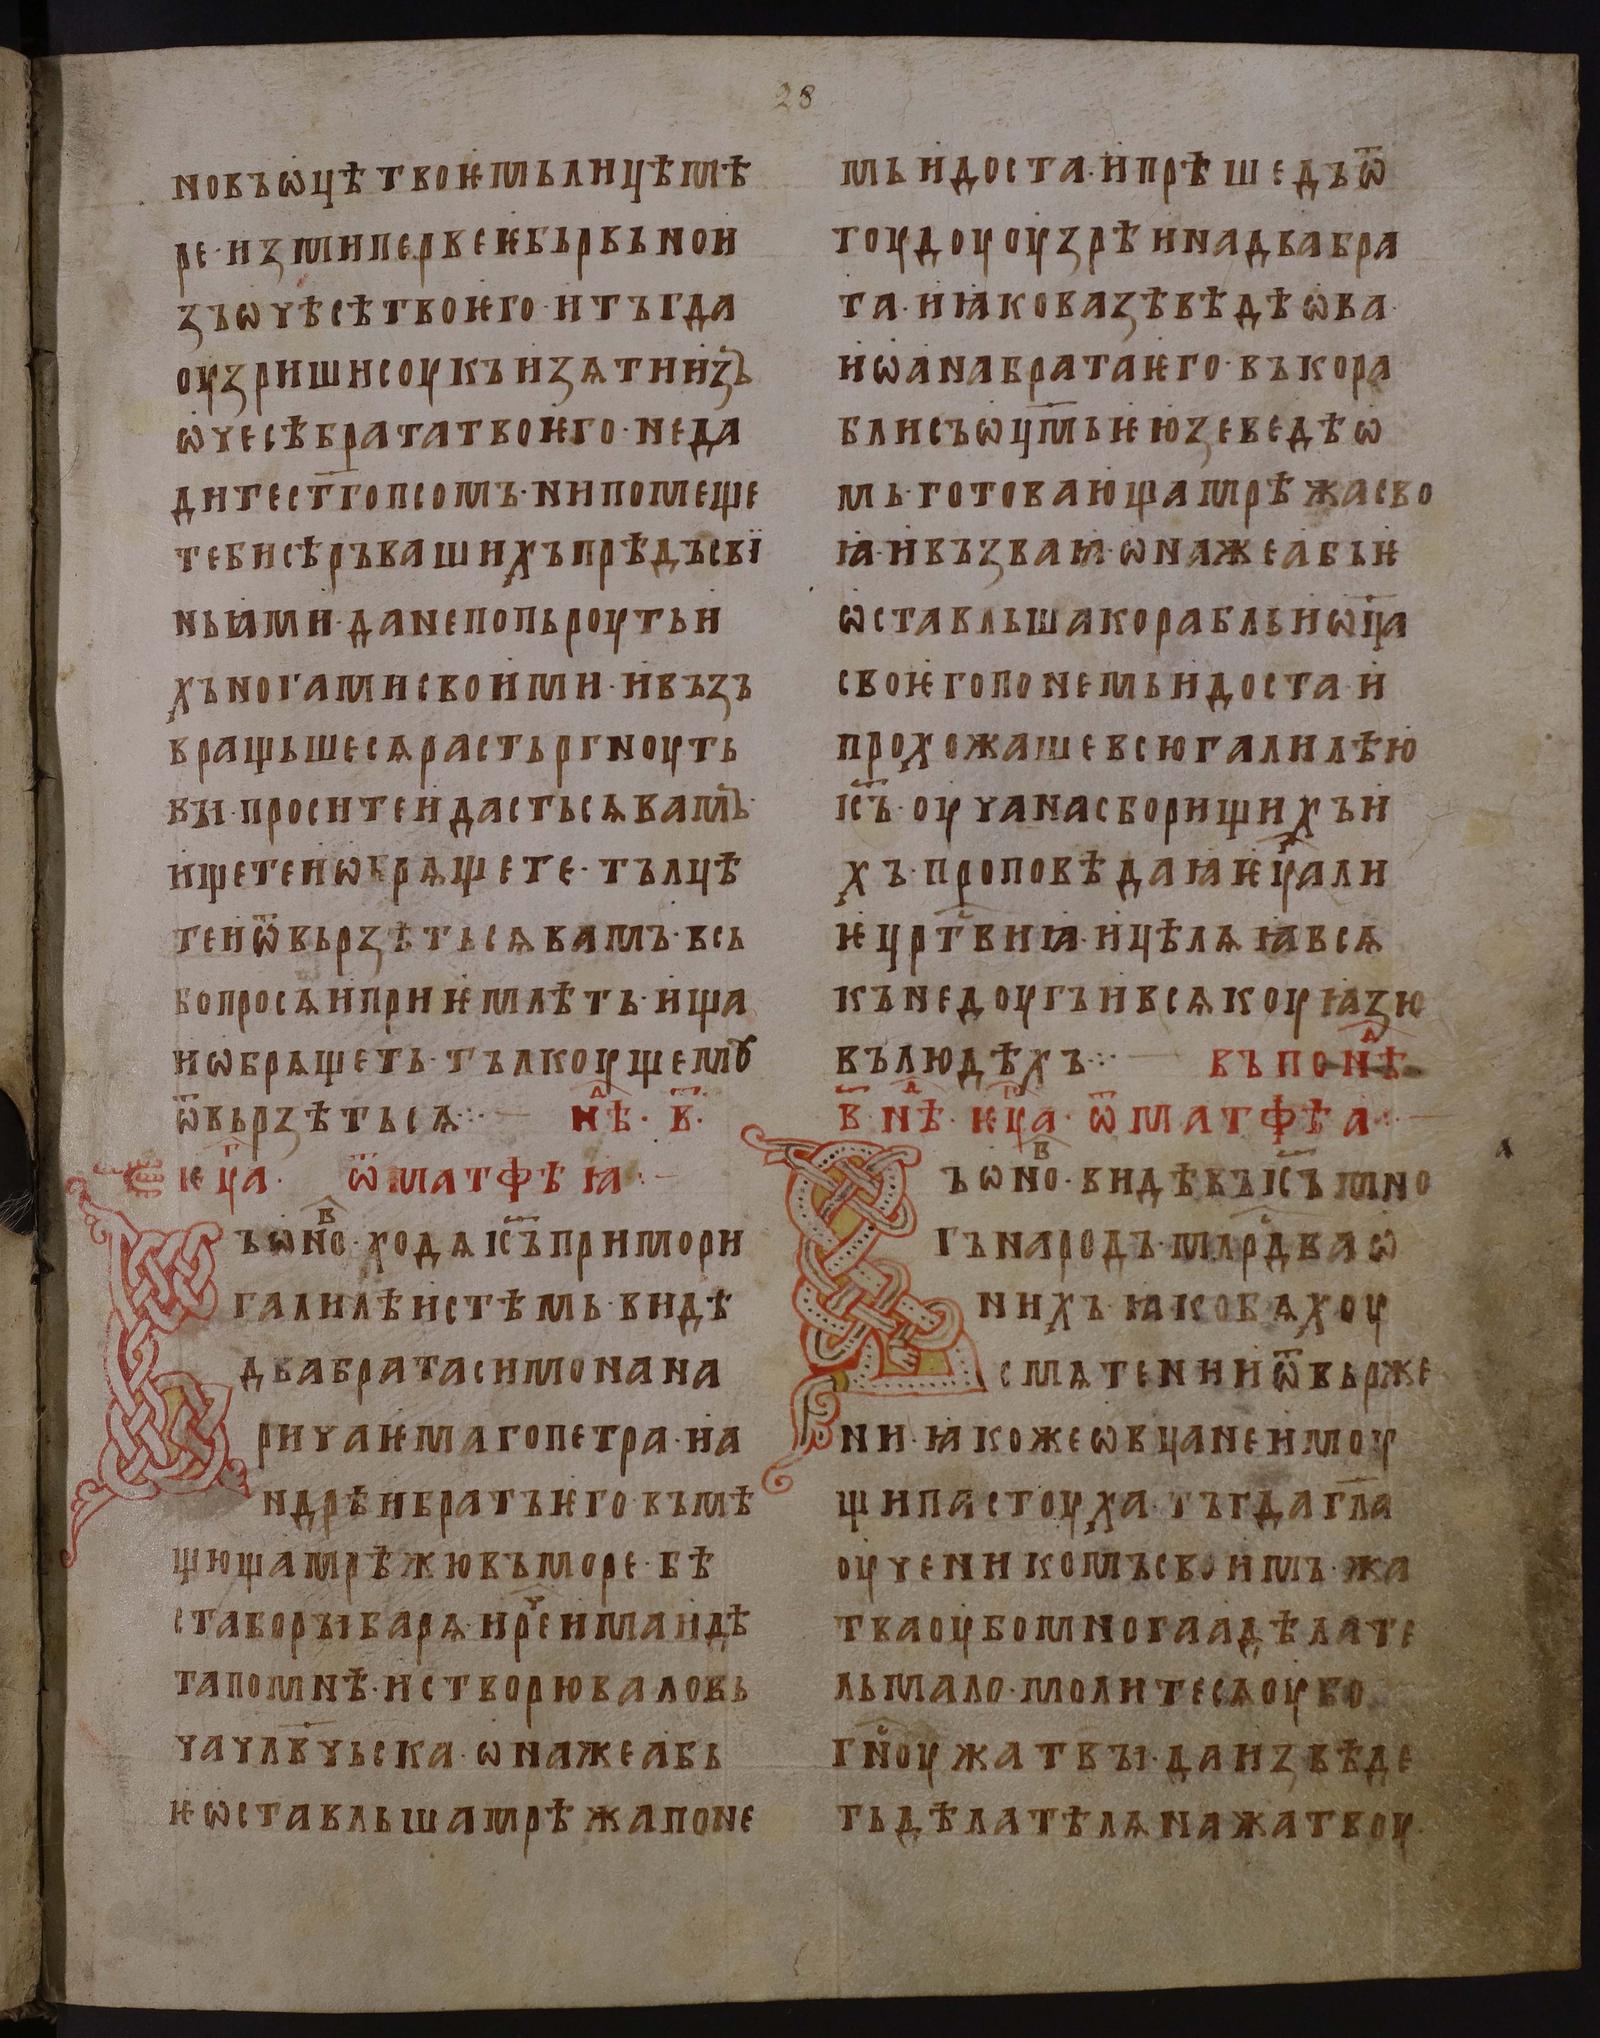 28
новъѡцѣтвоѥмьлицѣмѣ
ре·измипервеѥбьрвьнои
зъѡчѣсѣтвоѥго·итъгда
оузришисоукъизѧтиизъ
ѡчесѣбрататвоѥго·неда
дитест҃гопсомъ·нипомеще
тебисѣръвашихъпрѣдъсвї
ньꙗми·данепопьроутьи
хъногамисвоими·ивъзъ
вращьшесѧрастьргноуть
вꙑ·проситеидастьсѧвамъ
ищетеиѡбрѧщете·тълцѣ
теиѿвьрзѣтьсѧвамъ·всь
бопросѧиприѥмлѣть·ища
иѡбрѧщеть·тълкоущемꙋ
ѿвьрзѣтьсѧ⁘ нѣⷧ·в҃·
ѥуⷢ҇а· ѿматфѣꙗ·
ъѡноⷡ·ходѧіс҃ъпримори
галилѣистѣмь·видѣ
двабратасимонана
ричаѥмагопетра·иа
ндрѣибратъѥго·въмѣ
щющамрѣжювъморе·бѣ
стаборꙑбарѧ·иреⷱ҇имаидѣ
тапомнѣ·истворюваловь
чачлв҃чьска·ѡнажеабь
ѥѡставльшамрѣжапоне
мьидоста·ипрѣшедъѿ
тоудоуоузрѣинадвабра
та·иꙗковазѣвѣдѣѡва·
иѡанабратаѥго·въкора
блисъѡц҃мьѥюзеведѣѡ
мь·готовающамрѣжасво
ꙗ·ивъзваꙗ·ѡнажеабьѥ
ѡставльшакорабльиѡц҃а
своѥгопонемьидоста·и
прохожашевсюгалилѣю
іс҃ъ·оучанасборищихъи
хъ·проповѣдаꙗѥуⷢ҇али
ѥцрⷭ҇твиꙗ·ицѣлѧꙗвсѧ
кънедоугъивсѧкоуꙗзю
вълюдѣхъ⁘ въпонⷣѣ
в҃·нѣⷧ·ѥуⷢ҇а·ѿматфѣа⁘
ъѡноⷡ·видѣвъіс҃ъмно
гънародъ·млрⷭ҇дваѡ
нихъ·ꙗкобѧхоу
смѧтениииѿвьрже
ни·ꙗкожеѡвцанеимоу
щипастоуха·тъгдагл҃а
оученикомъсвоимъ·жа
тваоубомногаадѣлате
льмало·молитесѧоубо
гнⷭ҇оужатвꙑ·даизвѣде
тьдѣлатѣлѧнажатвоу